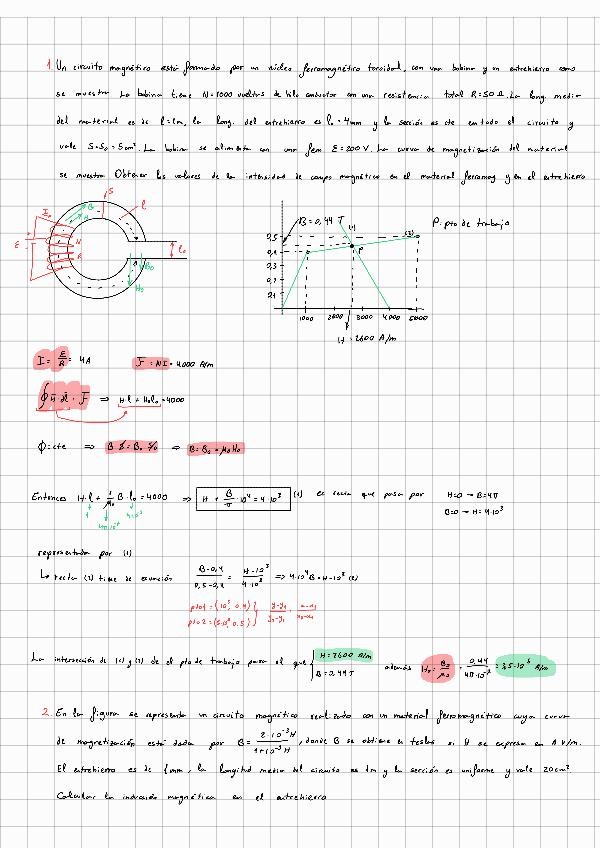 1. Un circuito magnético está formado por un núcleo ferromagnético toroidal, con una bobina y un entrehierro como
se muestra. La bobina tiene N=1000 vueltas de hilo conductor con una resistencia total R=50 Ω. La long. media
del material es de l=1m, la long. del entrehierro es l₀=4mm y la sección es cte en todo el circuito y
vale S=S₀=5cm². La bobina se alimenta con una fem E=200V. La curva de magnetización del material
se muestra. Obtener los valores de la intensidad de campo magnético en el material ferromag y en el entrehierro
S
l
B
H
I
E
N
R
l₀
B₀
H₀
B=0,44 T
(1)
(2)
P
0,5
0,4
0,3
0,2
0,1
1000 2000 3000 4000 5000
H=2600 A/m
P: pto de trabajo
I = E/R = 4A F = NI = 4000 A/m
∮ H·dl = F ⇒ Hl + H₀l₀ = 4000
Φ=cte ⇒ B S = B₀ S₀ ⇒ B = B₀ = μ₀H₀
Entonces H·l + 1/μ₀ B·l₀ = 4000 ⇒ H + B/π · 10⁴ = 4·10³ (1) ec recta que pasa por H=0 → B=4π
B=0 → H=4·10³
representada por (1)
La recta (2) tiene de ecuación (B-0,4)/(0,5-0,4) = (H-10³)/(4·10³) ⇒ 4·10⁴B = H-10³ (2)
pto1 = (10³, 0.4)
pto2 = (5·10³, 0.5)
La intersección de (1) y (2) da el pto de trabajo para el que H=2600 A/m
B=0,44T
además H₀ = B₀/μ₀ = 0,44/(4π·10⁻⁷) = 3,5·10⁵ A/m
2. En la figura se representa un circuito magnético realizado con un material ferromagnético cuya curva
de magnetización está dada por B = (2·10⁻³H)/(1+10⁻³H), donde B se obtiene en teslas si H se expresa en A v/m.
El entrehierro es de 1mm, la longitud media del circuito es 1m y la sección es uniforme y vale 20cm²
Calcular la inducción magnética en el entrehierro